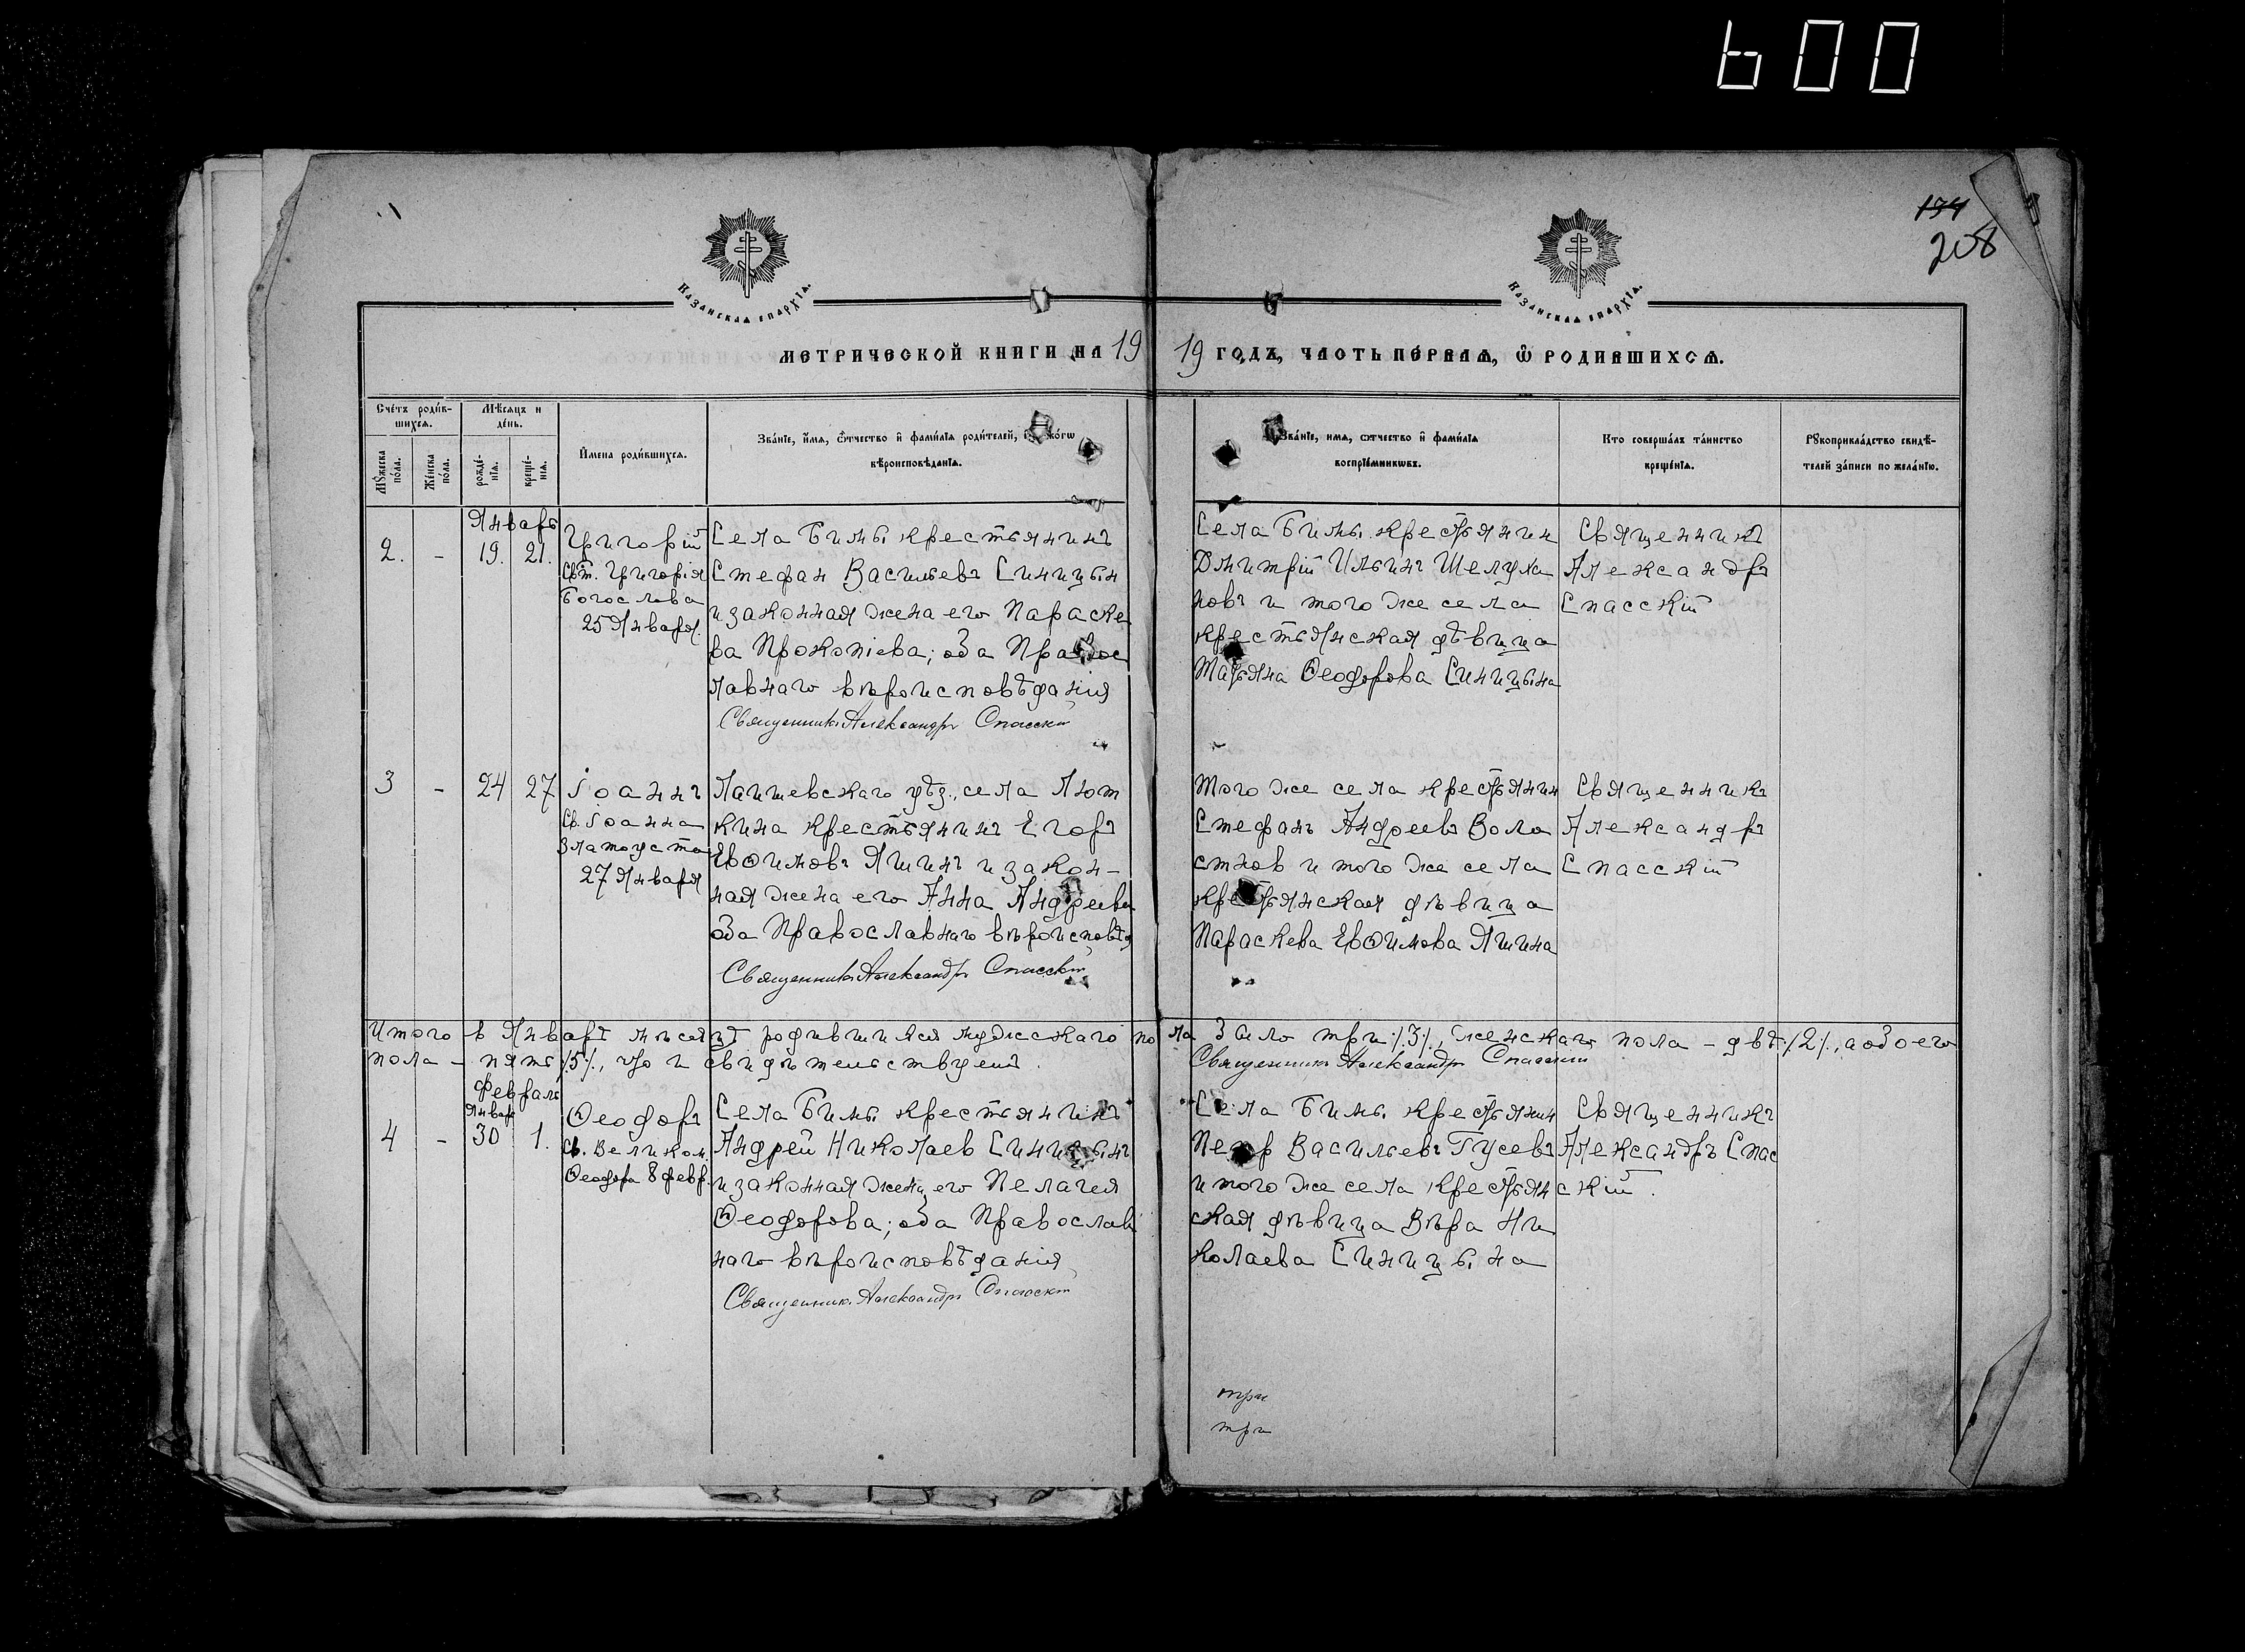 600
134
208
Казанская епархїя.
Казанская епархїя.
МЕТРИЧЕСКОЙ КНИГИ НА 19 19 ГОДЪ, ЧАСТЬ ПЕРВАЯ, Ѿ РОДИВШИХСЯ.
Счетъ родив-
шихся.
Мѣсяцъ и
день.
Мꙋжеска
пола.
Женска
пола.
рожде-
нїя.
креще-
нїя.
Имена родившихся.
Званїе, имя, ѿтчество и фамилїя родителей,
вѣроисповѣданїя.
Званїе, имя, ѿтчество и фамилїя
воспрїемникѡвъ.
Кто совершалъ таинство
крещенїя.
Рꙋкоприкладство свидѣ-
телей записи по желанїю.
Январь
2. - 19. 21.
Григорій
Свт. Григорія
Богослова
25 Января.
Села Бимы крестьянинъ
Стефан Васильевъ Синицын
и законная жена его Параске
ва Прокопіева; оба Правос
лавнаго вѣроисповѣданія
Священникъ Александръ Спасскій
Села Бимы крестьянин
Дмитрій Ильинъ Шелуха
новъ и того же села
крестьянская дѣвица
Татьяна Ѳеодорова Синицына
Священникъ
Александръ
Спасскій
3 - 24 27
Іоаннъ
Св. Іоанна
Златоуста
27 Января
Лаишевскаго уѣз., села Лют
кина крестьянинъ Егоръ
Евѳимовъ Яшинъ и закон-
ная жена его Анна Андреева
оба Православнаго вѣроисповѣд
Священникъ Александръ Спасскій
Того же села крестьянин
Стефанъ Андреевъ Воло
стнов и того же села
крестьянская дѣвица
Параскева Евѳимова Яшина
Священникъ
Александръ
Спасскій
Итого в Январѣ мѣсяцѣ родившихся мужскаго по ла было три /3/, женскаго пола - двѣ /2/, а обоего
пола - пять /5/, что и свидѣтельствуемъ.
Священникъ Александръ Спасскій
Февраль
Январь
4 - 30 1.
Ѳеодоръ
Св. Великом.
Ѳеодора 8 февр.
Села Бимы крестьянинъ
Андрей Николаев Синицынъ
и законная жена его Пелагея
Ѳеодорова; оба Православ
наго вѣроисповѣданія
Священникъ Александръ Спасскій
Села Бимы крестьянин
Петр Васильевъ Гусевъ
и того же села крестьян
ская дѣвица Вѣра Ни
колаева Синицына
Священникъ
Александръ Спас
скій.
три
три